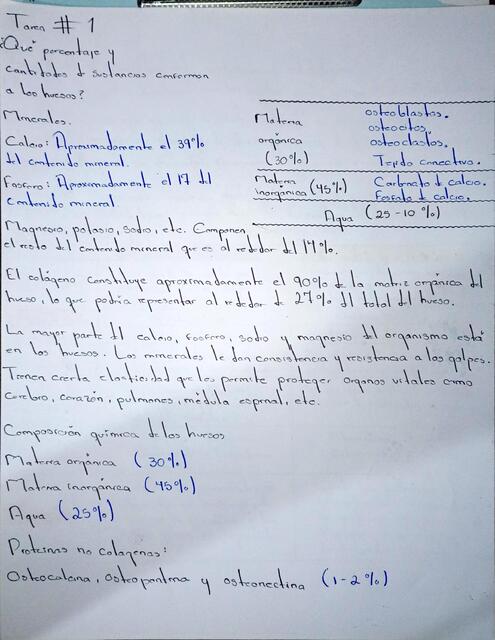 Tarea # 1
¿Que porcentaje y
cantidades d sustancias conforman
a los huesos?
Minerales.
Calcio: Aproximadamente el 39%
del contenido mineral.
Fosforo: Aproximadamente el 17 del
contenido mineral
Materia
orgánica
(30%)
osteoblastos.
osteocitos.
osteoclastos.
Tejido conectivo.
Materia
inorgánica (45%)
Carbonato d calcio.
Fosfato d calcio.
Agua (25-10%)
Magnesio, potasio, sodio, etc. Componen
el resto del contenido mineral que es al rededor del 14%.
El colágeno constituye aproximadamente el 90% de la matriz orgánica del
hueso, lo que podria representar al rededor de 27% dl total del hueso.
La mayor parte dl calcio, fosforo, sodio y magnesio del organismo está
en los huesos. Los minerales le dan consistencia y resistencia a los golpes.
Tienen cierta elasticidad que les permite proteger organos vitales como
cerebro, corazón, pulmones, médula espinal, etc.
Composición química de los huesos
Materia orgánica (30%)
Materia inorgánica (45%)
Agua (25%)
Proteinas no colagenas:
Osteocalcina, osteopontina y osteonectina (1-2%)